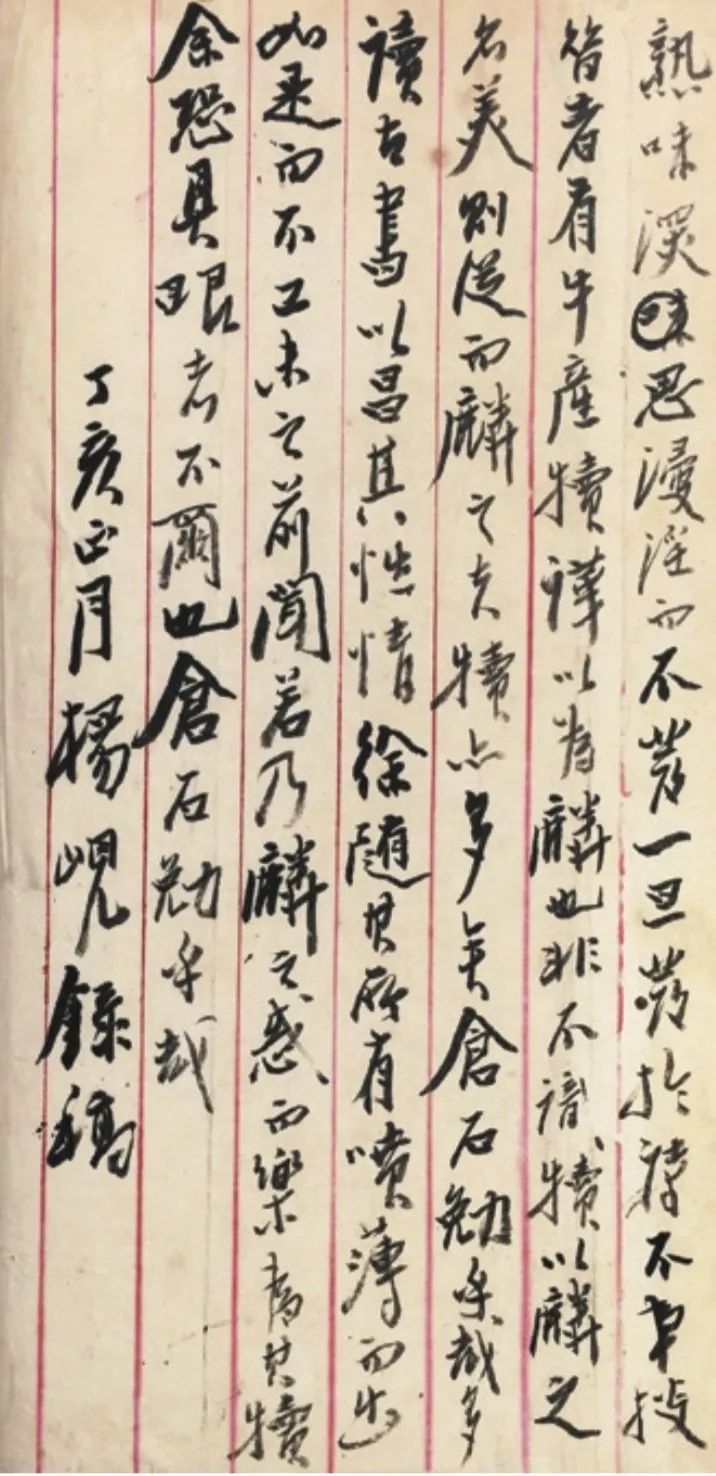 熟味淡思漫淫而不發一旦發於詩不
昔者有牛產犢譁以為麟也非不識犢以麟之
名美則從而麟之去犢亦多矣倉石勉乎哉多
讀古書以昌其性情徐隨其所有噴薄而出
如是而不工未之前聞若乃麟之惑而樂為其犢
余恐具眼者不爾也倉石勉乎哉
丁亥正月楊峴錄稿